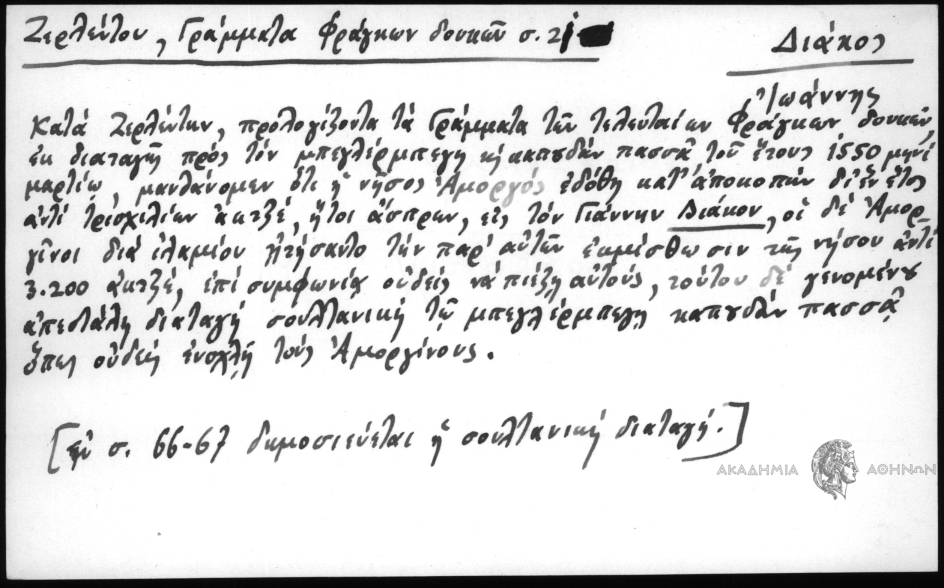 Ζερλέντου, Γράμματα Φράγκων δουκῶν σ. 21
Διάκος
Ἰωάννης
Κατά Ζερλέντην, προλογίζοντα τά Γράμματα τῶν τελευταίων Φράγκων δουκῶν,
ἐκ διαταγῆς πρός τόν μπεγλέρμπεγη κ' καπουδάν πασσᾶ τοῦ ἔτους 1550 μηνί
μαρτίῳ, μανθάνομεν ὅτι ἡ νῆσος Ἀμοργός ἐδόθη κατ' ἀποκοπήν δι' ἕν ἔτος
ἀντί τρισχιλίων ἀκτζέ, ἤτοι ἄσπρων, εἰς τόν Γιάννην Διάκον, οἱ δέ Ἀμορ-
γῖνοι διά ἰλαμίου ᾐτήσαντο τήν παρ' αὐτῶν ἐκμίσθωσιν τῆς νήσου ἀντί
3.200 ἀκτζέ, ἐπί συμφωνίᾳ οὐδείς νά πιέζῃ αὐτούς, τούτου δέ γενομένου
ἀπεστάλη διαταγή σουλτανική τῷ μπεγλέρμπεγη καπουδάν πασσᾷ
ὅπως οὐδείς ἐνοχλῇ τούς Ἀμοργίνους.
[ἐν σ. 66-67 δημοσιεύεται ἡ σουλτανική διαταγή.]
ΑΚΑΔΗΜΙΑ ΑΘΗΝΩΝ